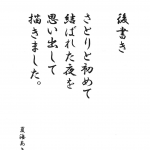 後書き
さとりと初めて
結ばれた夜を
思い出して
描きました。
夏海あさ